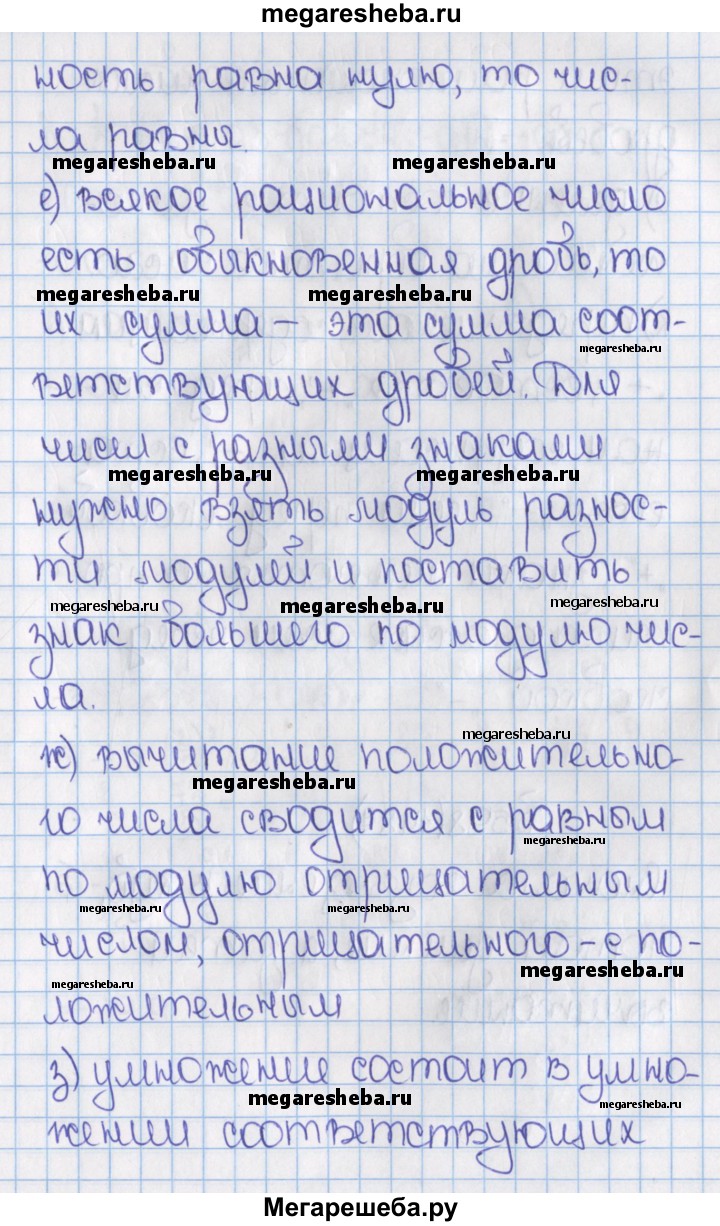 megaresheba.ru
ность равна нулю, то чис-
ла равны
megaresheba.ru megaresheba.ru
е) всякое рациональное число
есть обыкновенная дробь, то
megaresheba.ru megaresheba.ru
их сумма – эта сумма соот-
megaresheba.ru
ветствующих дробей. Для
чисел с разными знаками
megaresheba.ru megaresheba.ru
нужно взять модуль разнос-
ти модулей и поставить
megaresheba.ru megaresheba.ru megaresheba.ru
знак большего по модулю чис-
ла.
megaresheba.ru
ж) вычитание положительно-
megaresheba.ru
го числа сводится с равным
megaresheba.ru
по модулю отрицательным
megaresheba.ru megaresheba.ru
числом, отрицательного – с по-
megaresheba.ru
megaresheba.ru
ложительным
з) умножение состоит в умно-
megaresheba.ru megaresheba.ru
жении соответствующих
Мегарешеба.ру